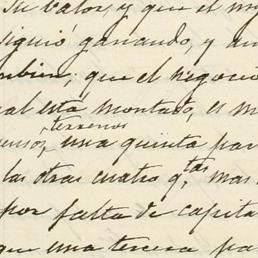 su valor, y que el my
siguió ganando, y au
mbien; que el negocio
al está montado, es m
terrenos
ensos, una quinta par
las otras cuatro q.tas mas
por falta de capita
que una tercera pa